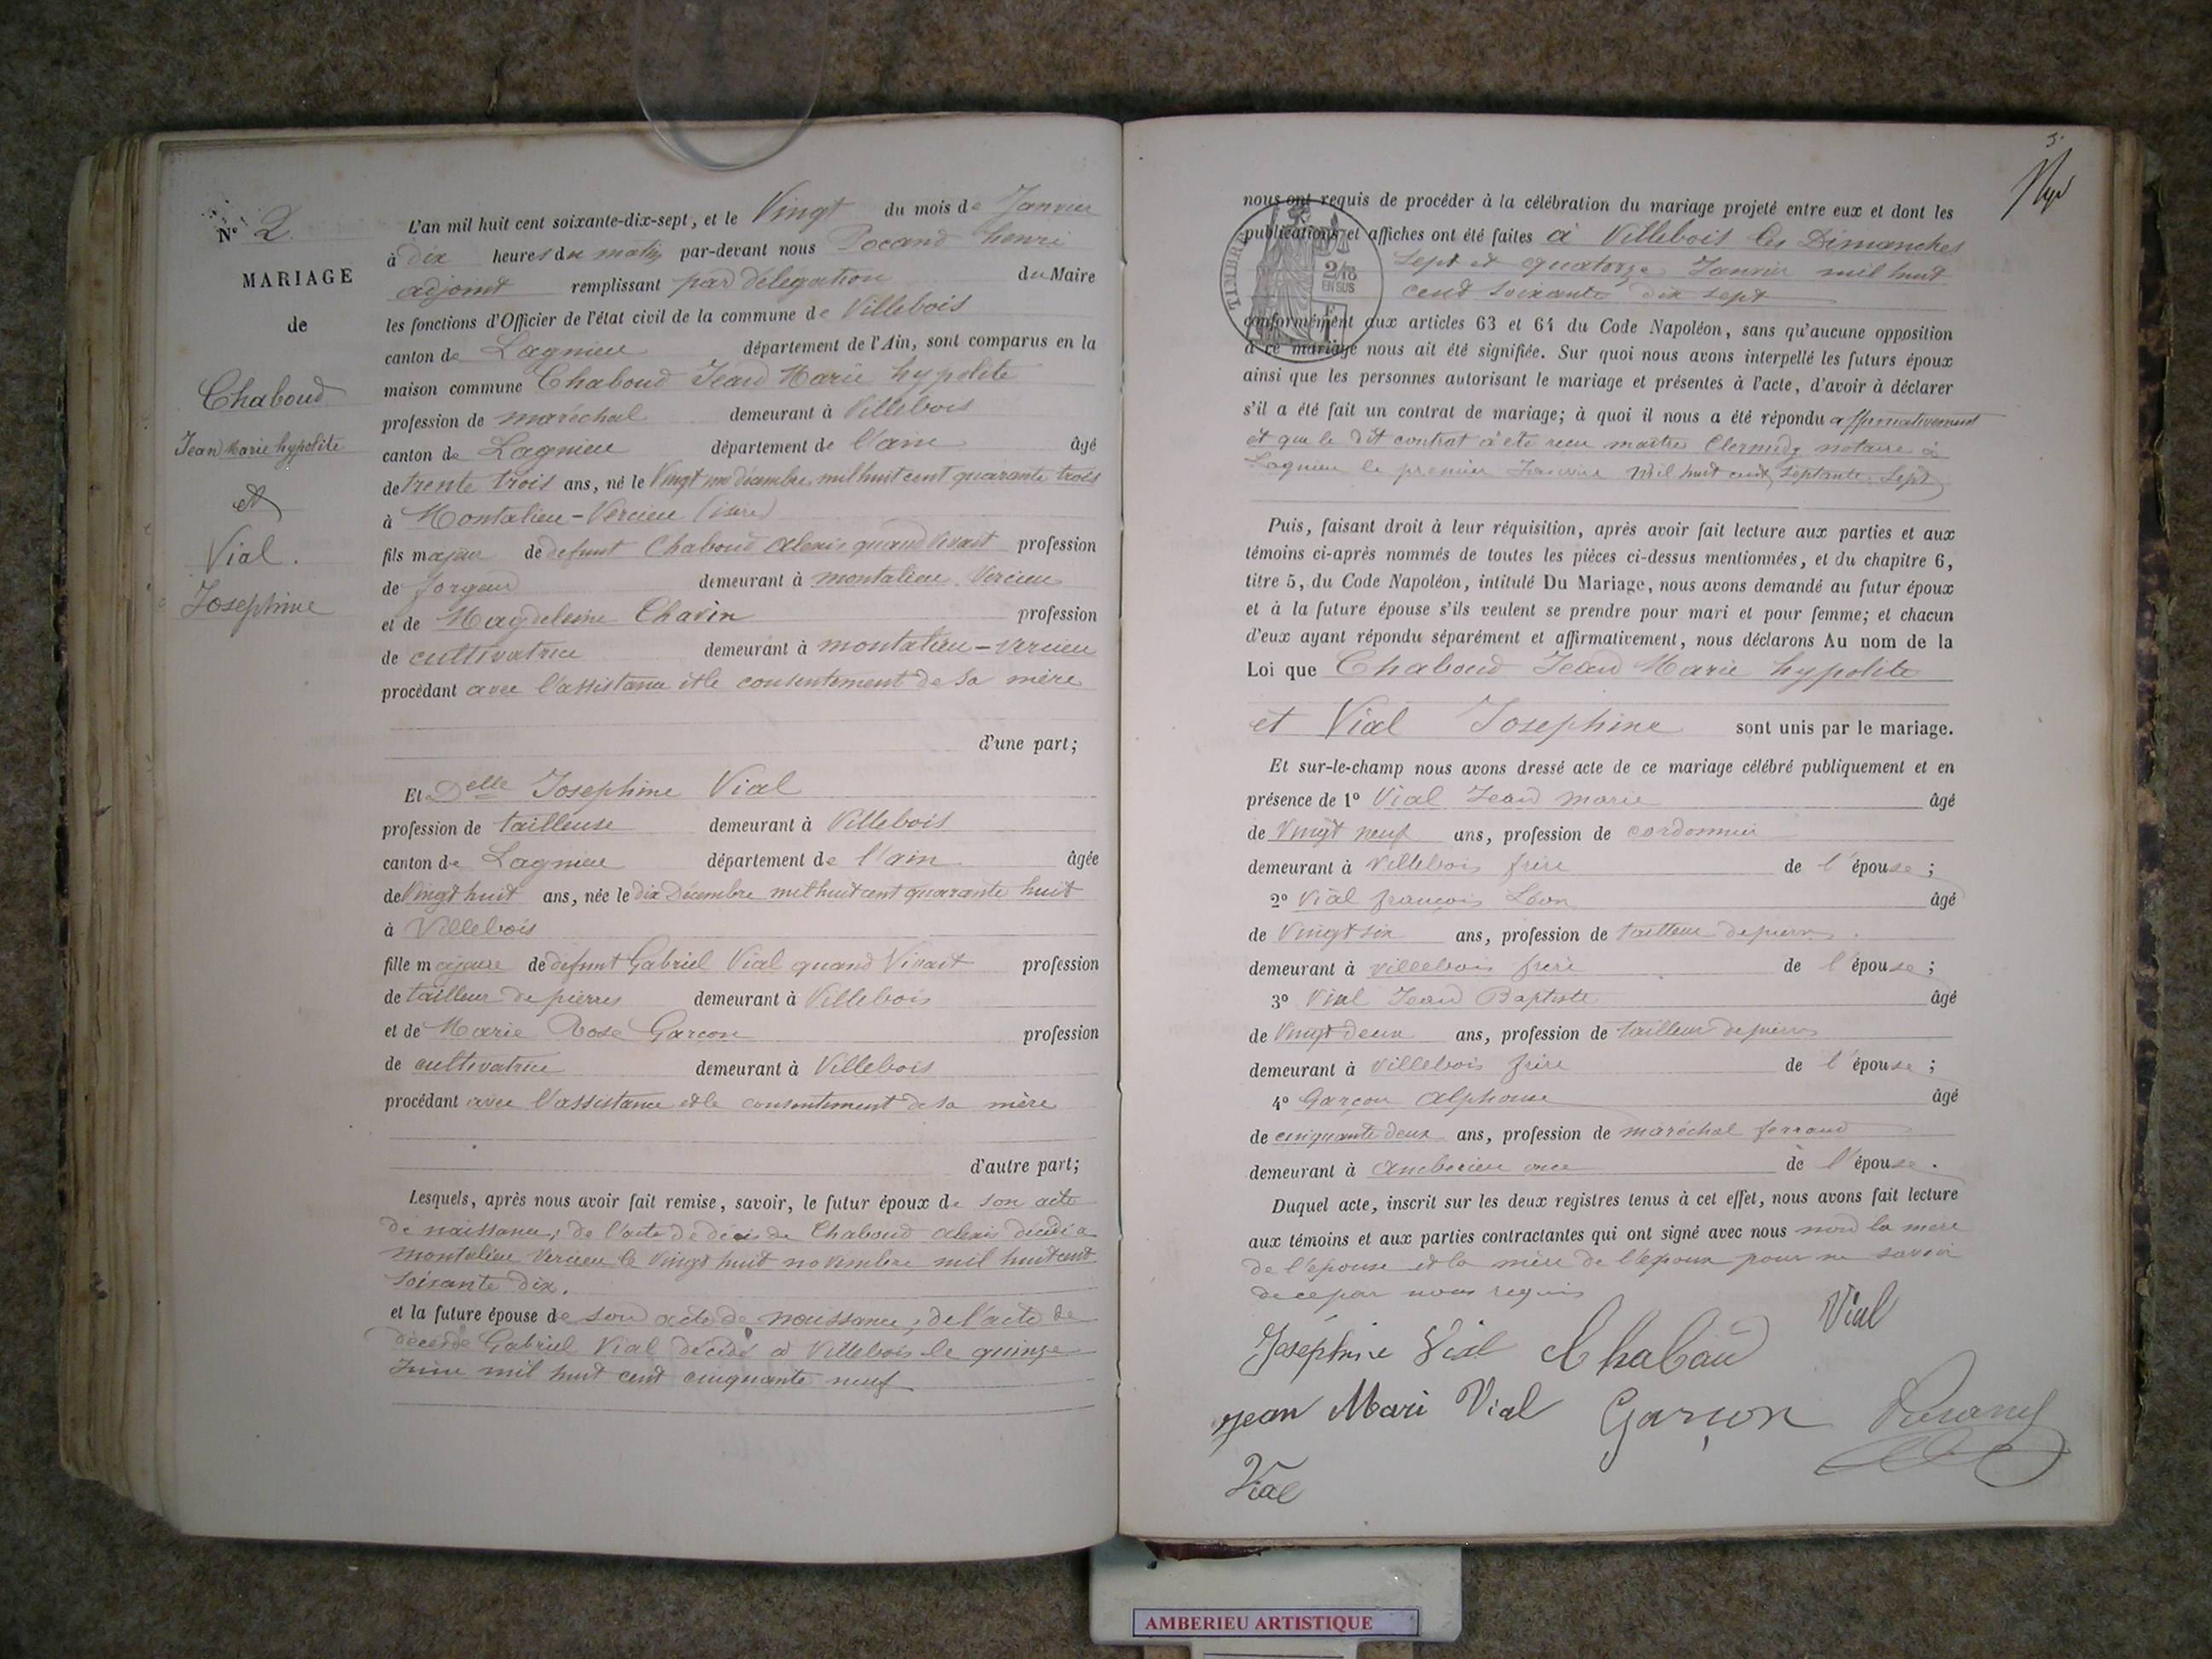 N° 2.
MARIAGE
de
Chaboud
Jean Marie hypolite
et
Vial.
Josephine
L'an mil huit cent soixante-dix-sept, et le Vingt du mois de Janvier
à dix heures du matin par-devant nous Pocand henri
adjoint remplissant par délégation du Maire
les fonctions d'Officier de l'état civil de la commune de Villebois
canton de Lagnieu département de l'Ain, sont comparus en la
maison commune Chaboud Jean Marie hypolite
profession de maréchal demeurant à Villebois
canton de Lagnieu département de l'ain âgé
de trente trois ans, né le Vingt un décembre mil huit cent quarante trois
à Montalieu-Vercieu (isère)
fils majeur de defunt Chaboud alexis quand Vivait profession
de forgeur demeurant à montalieu Vercieu
et de Magdeleine Chavin profession
de cultivatrice demeurant à montalieu-vercieu
procédant avec l'assistance et le consentement de sa mère
d'une part;
Et Delle Josephine Vial
profession de tailleuse demeurant à Villebois
canton de Lagnieu département de l'ain âgée
de Vingt huit ans, née le dix Décembre mil huit cent quarante huit
à Villebois
fille majeure de défunt Gabriel Vial quand Vivait profession
de tailleur de pierres demeurant à Villebois
et de Marie Rose Garcon profession
de cultivatrice demeurant à Villebois
procédant avec l'assistance et le consentement de sa mère
d'autre part;
Lesquels, après nous avoir fait remise, savoir, le futur époux de son acte
de naissance; de l'acte de décès de Chaboud alexis décédé a
montalieu Vercieu le Vingt huit novembre mil huit cent
soixante dix.
et la future épouse de son acte de naissance, de l'acte de
décès de Gabriel Vial décédé à Villebois le quinze
Juin mil huit cent cinquante neuf
5.
nous ont requis de procéder à la célébration du mariage projeté entre eux et dont les
publications et affiches ont été faites à Villebois les Dimanches
sept et quatorze Janvier mil huit
cent soixante dix sept
TIMBRE
2/10
EN SUS
conformément aux articles 63 et 64 du Code Napoléon, sans qu'aucune opposition
à ce mariage nous ait été signifiée. Sur quoi nous avons interpellé les futurs époux
ainsi que les personnes autorisant le mariage et présentes à l'acte, d'avoir à déclarer
s'il a été fait un contrat de mariage; à quoi il nous a été répondu affirmativement
et que le dit contrat a été recu maitre notaire à
Lagnieu le premier Janvier mil huit cent septante sept
Puis, faisant droit à leur réquisition, après avoir fait lecture aux parties et aux
témoins ci-après nommés de toutes les pièces ci-dessus mentionnées, et du chapitre 6,
titre 5, du Code Napoléon, intitulé Du Mariage, nous avons demandé au futur époux
et à la future épouse s'ils veulent se prendre pour mari et pour femme; et chacun
d'eux ayant répondu séparément et affirmativement, nous déclarons Au nom de la
Loi que Chaboud Jean Marie hypolite
et Vial Josephine sont unis par le mariage.
Et sur-le-champ nous avons dressé acte de ce mariage célébré publiquement et en
présence de 1° Vial Jean marie âgé
de Vingt neuf ans, profession de cordonnier
demeurant à Villebois frère de l'épouse;
2° Vial françois Léon âgé
de Vingt six ans, profession de tailleur de pierres.
demeurant à villebois frère de l'épouse;
3° Vial Jean Baptiste âgé
de Vingt deux ans, profession de tailleur de pierres
demeurant à Villebois frère de l'épouse;
4° Garçon alphonse âgé
de cinquante deux ans, profession de maréchal ferrand
demeurant à Amberieu oncle de l'épouse.
Duquel acte, inscrit sur les deux registres tenus à cet effet, nous avons fait lecture
aux témoins et aux parties contractantes qui ont signé avec nous non la mere
de l'épouse et la mère de l'époux pour ne savoir
de ce par nous requis
Vial
Joséphine Vial Chaboud
Jean Mari Vial Garçon Pocand
Vial
AMBERIEU ARTISTIQUE